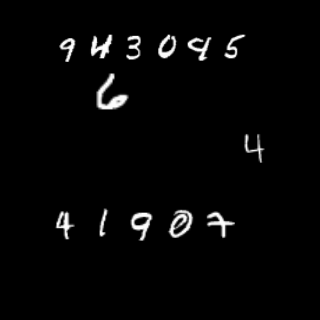 943095
6
4
41907